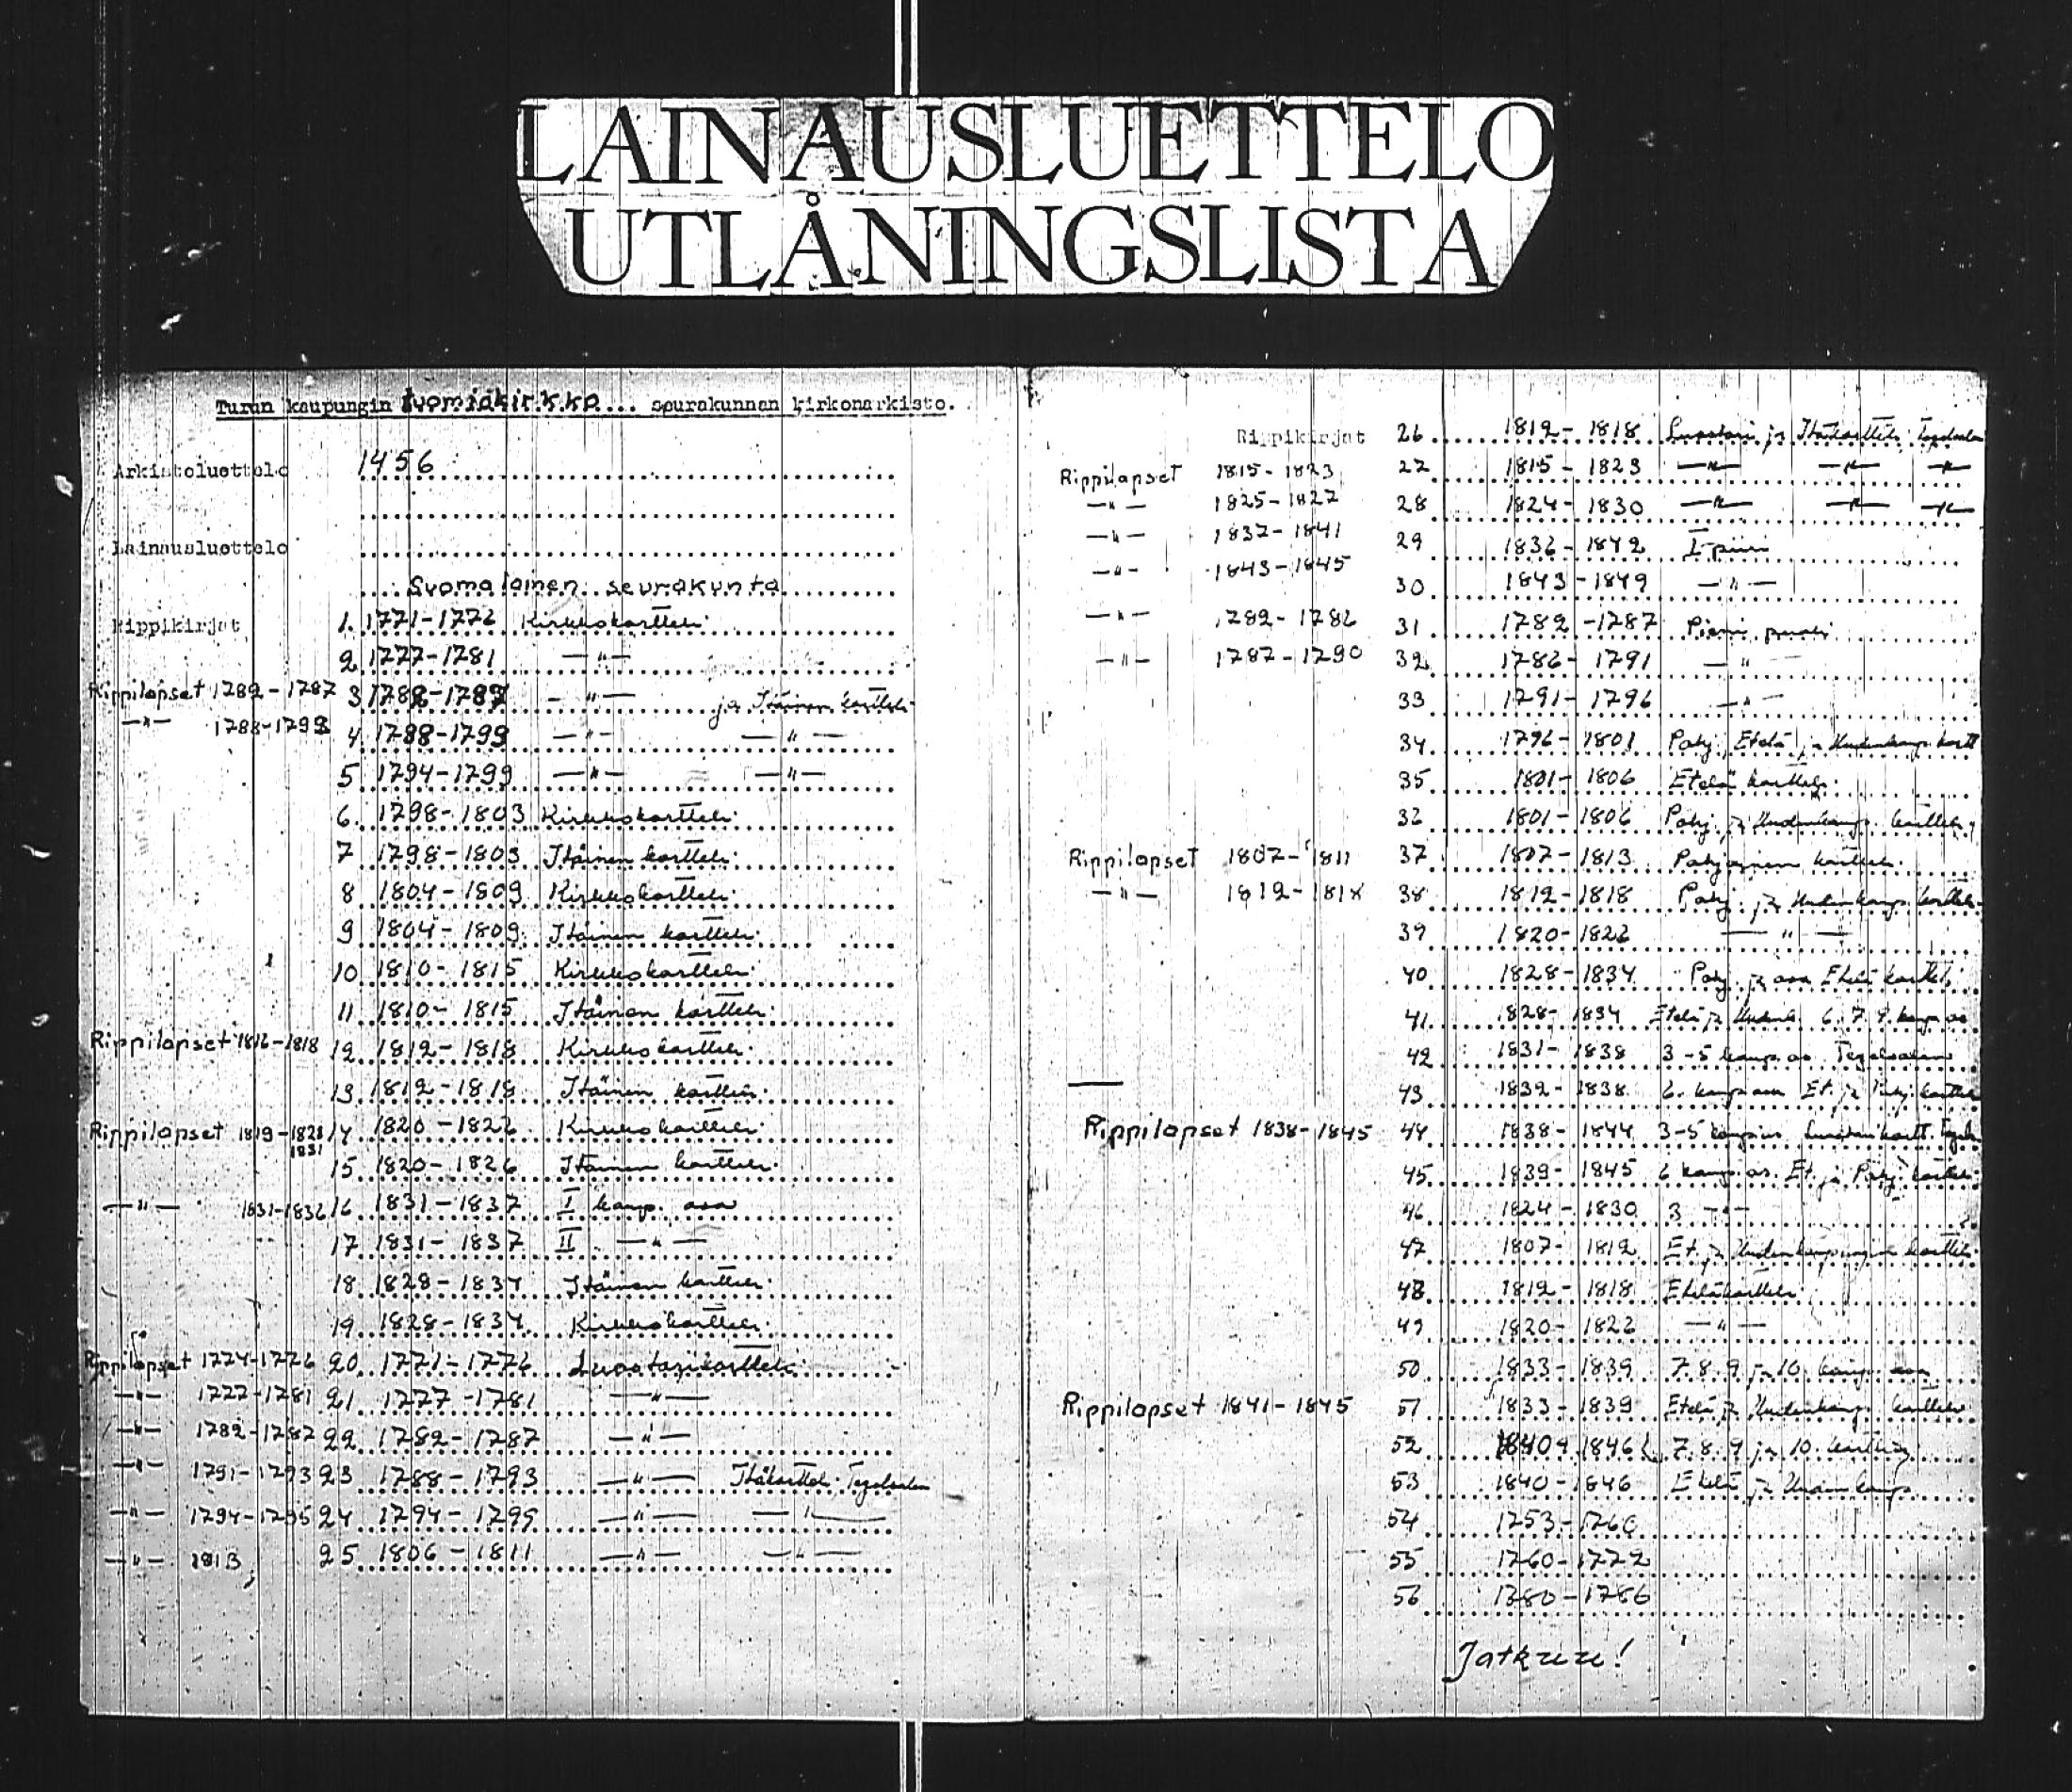 LAINAUSLUETTELO
UTLÅNINGSLISTA
Turun kaupungin tuomiokirkko... seurakunnan kirkonarkisto.
Arkistoluettelo 1456
Lainausluettelo
Suomalainen seurakunta
Rippikirjat 1. 1771-1776 Kirkkokortteli
2 1777-1781 —"—
Rippilapset 1782-1787 3 1782-1787 —"— ja Itäinen kortteli
—"— 1788-1793 4 1788-1793 —"— —"—
5 1794-1799 —"— —"—
6. 1798-1803 Kirkkokortteli
7 1798-1803 Itäinen kortteli
8 1804-1809 Kirkkokortteli
9 1804-1809 Itäinen kortteli
10 1810-1815 Kirkkokortteli
11 1810-1815 Itäinen kortteli
Rippilapset 1816-1818 12 1812-1818 Kirkkokortteli
13 1812-1818 Itäinen kortteli
Rippilapset 1819-1828 14 1820-1826 Kirkkokortteli
1831
15 1820-1826 Itäinen kortteli
—"— 1831-1836 16 1831-1837 I kaup. osa
17 1831-1837 II —"—
18 1828-1834 Itäinen kortteli
19 1828-1834 Kirkkokortteli
Rippilapset 1774-1776 20 1771-1776 Luostarikortteli
—"— 1777-1781 21 1777-1781 —"—
—"— 1782-1787 22 1782-1787 —"—
—"— 1791-1793 23 1788-1793 —"— Itäkortteli
—"— 1794-1795 24 1794-1799 —"— —"—
—"— 1813 25 1806-1811 —"— —"—
Rippikirjat 26 1812-1818 Luostari ja Itäkortteli
Rippilapset 1815-1823 27 1815-1823 —"— —"— —"—
—"— 1825-1827 28 1824-1830 —"— —"— —"—
—"— 1837-1841 29 1836-1842 I piiri
—"— 1843-1845 30 1843-1849 —"—
—"— 1782-1786 31 1782-1787 Pieni puoli
—"— 1787-1790 32 1786-1791 —"—
33 1791-1796 —"—
34 1796-1801 Pohj. Etelä ja Uudenkaup. kortt
35 1801-1806 Etelä kortteli
36 1801-1806 Pohj. ja Uudenkaup. kortteli
Rippilapset 1807-1811 37 1807-1813 Pohjoinen kortteli
—"— 1812-1818 38 1812-1818 Pohj. ja Uudenkaup. kortteli
39 1820-1826 —"—
40 1828-1834 Pohj. ja osa Etelä kortteli
41 1828-1834 Etelä ja 6. 7.
42 1831-1838 3-5 kaup. os.
43 1832-1838 6. kaup. osa Et. ja Pohj. kortteli
Rippilapset 1838-1845 44 1838-1844 3-5 kaup. os. Luostari kortt.
45 1839-1845 6 kaup. os. Et. ja Pohj. kortteli
46 1824-1830 3 —"—
47 1807-1812 Et. ja Uudenkaupungin kortteli
48 1812-1818 Eteläkortteli
49 1820-1826 —"—
50 1833-1839 7. 8. 9 ja 10. kaup. osa
Rippilapset 1841-1845 51 1833-1839 Etelä ja Uudenkaup. kortteli
52 1840-1846 7. 8. 9 ja 10. kortteli
53 1840-1846 Etelä ja
54 1753-1760
55 1760-1772
56 1780-1786
Jatkuu!